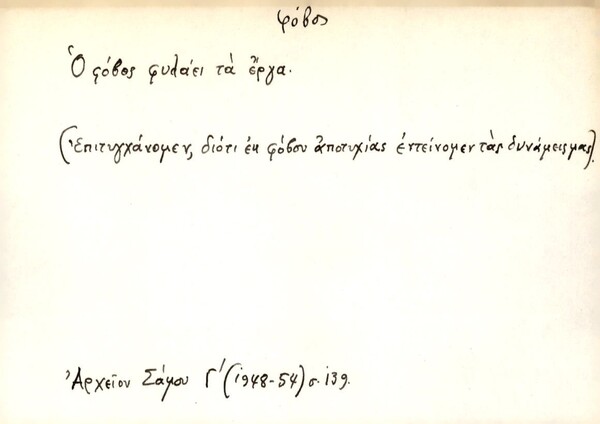 φόβος
Ὁ φόβος φυλάει τὰ ἔργα.
(Ἐπιτυγχάνομεν, διότι ἐκ φόβου ἀποτυχίας ἐντείνομεν τὰς δυνάμεις μας).
Ἀρχεῖον Σάμου Γ' (1948-54) σ. 139.